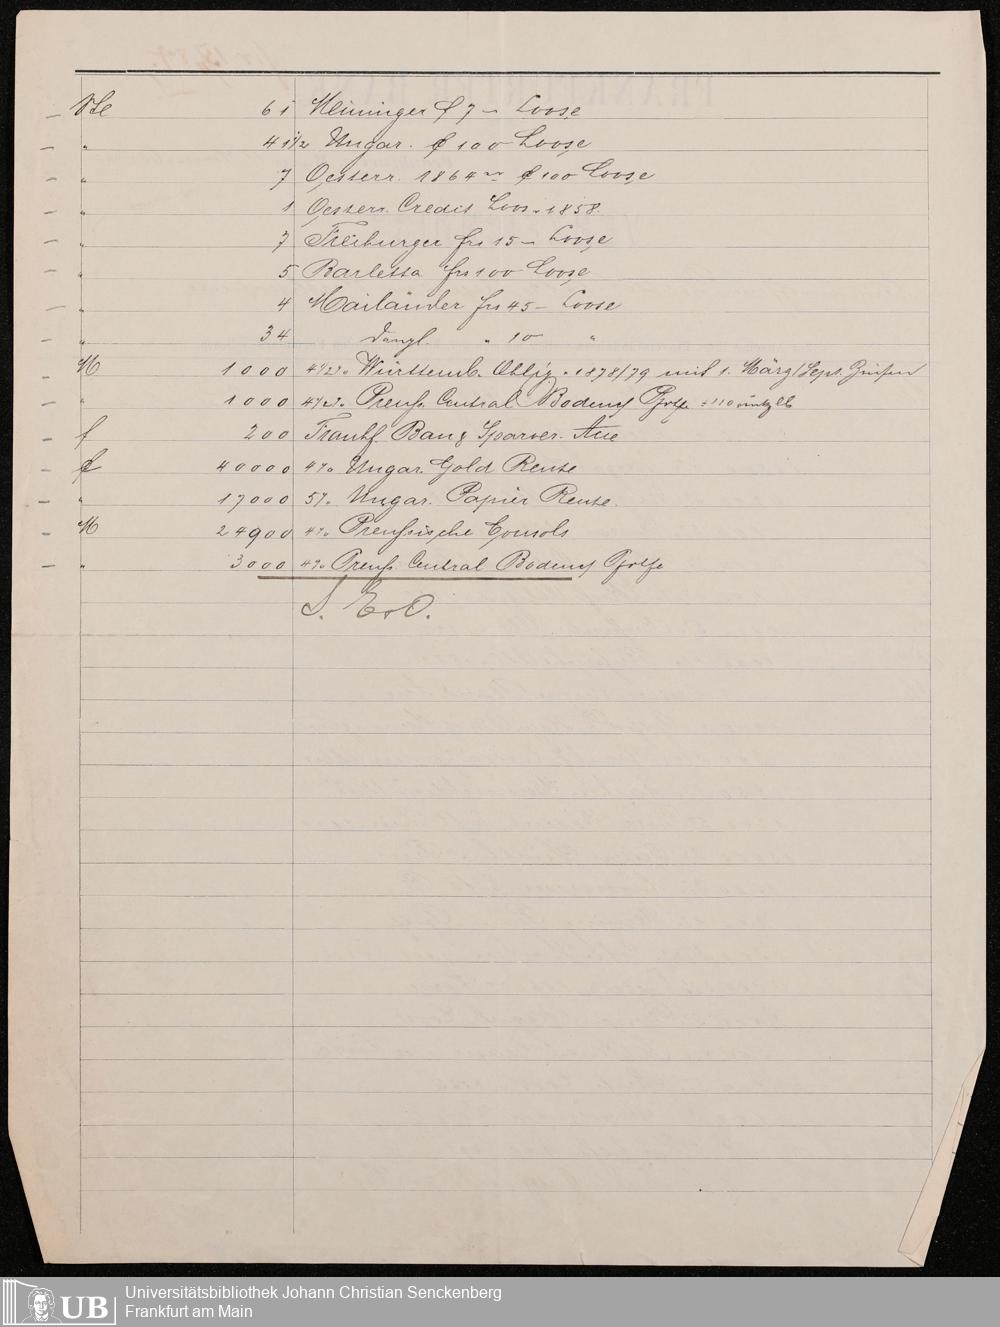 Stc 61 Meininger f 7 – Loose
" 41 1/2 Ungar. f 100 Loose
" 7 Oesterr. 1864er f 100 Loose
" 1 Oesterr. Credit Loos. 1858.
" 7 Freiburger frs 15 – Loose
" 5 Barletta frs 100 Loose
" 4 Mailänder frs 45 – Loose
" 34 dergl. " 10 "
M 1000 4 1/2 % Württemb. Oblig. 1878/79 mit 1. März/Sept. Zinsen
" 1000 4 1/2 % Preuß. Central Bodencr Pfdbfe 110 rückzlb
f 200 Frankf. Bau & Sparver. Atie
f 40000 4% Ungar. Gold Rente
" 17000 5% Ungar. Papier Rente.
M 24900 4% Preußische Consols
" 3000 4% Preuß. Central Bodencr Pfdbfe
S. E. & O.
UB
Universitätsbibliothek Johann Christian Senckenberg
Frankfurt am Main